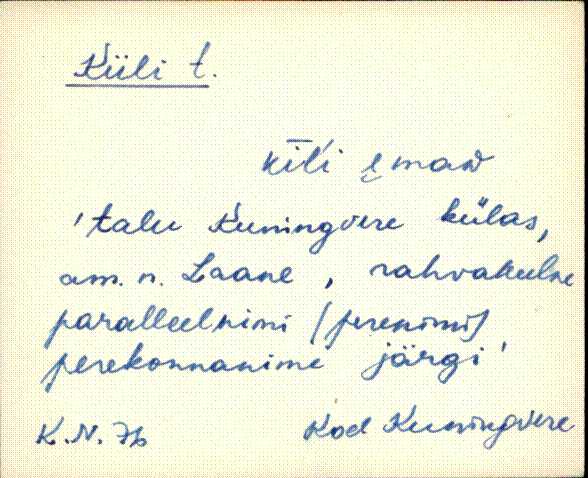 Küli t.
kīĺi ę maɷ
'talu Kuningvere külas,
am. n. Laane, rahvakeelne
paralleelnimi (perenimi)
perekonnanime järgi'
K. N. 76 Kod Kuningvere